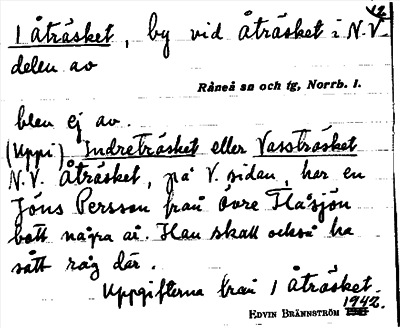 12
1 Åträsket, by vid Åträsket i N.V.
delen av
Råneå sn och tg, Norrb. l.
blev ej av.
(Uppi) Indreträsket eller Vassträsket
N.V. Åträsket, på V. sidan, har en
Jöns Persson från Övre Flåsjön
bott några år. Han skall också ha
sått råg där.
Uppgifterna från 1 Åträsket.
1942.
EDVIN BRÄNNSTRÖM